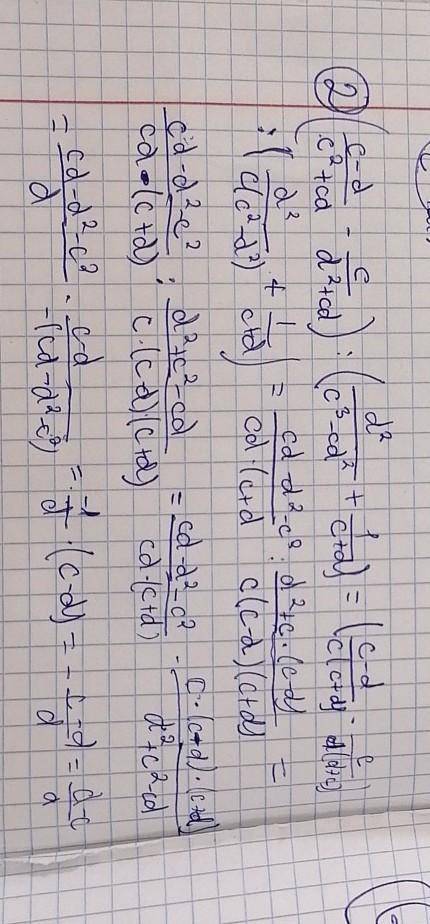 ② ( (c-d)/(c²+cd) - c/(d²+cd) ) : ( d²/(c³-cd²) + 1/(c+d) ) = ( (c-d)/(c(c+d)) - c/(d(d+c)) )
: ( d²/(c(c²-d²)) + 1/(c+d) ) = (cd-d²-c²)/(cd·(c+d) : (d²+c·(c-d))/(c(c-d)(c+d)) =
(cd-d²-c²)/(cd·(c+d)) : (d²+c²-cd)/(c·(c-d)·(c+d)) = (cd-d²-c²)/(cd·(c+d)) · (c·(c-d)·(c+d))/(d²+c²-cd)
= (cd-d²-c²)/d · (c-d)/(-(cd-d²-c²)) = -1/d · (c-d) = - (c-d)/d = (d-c)/d